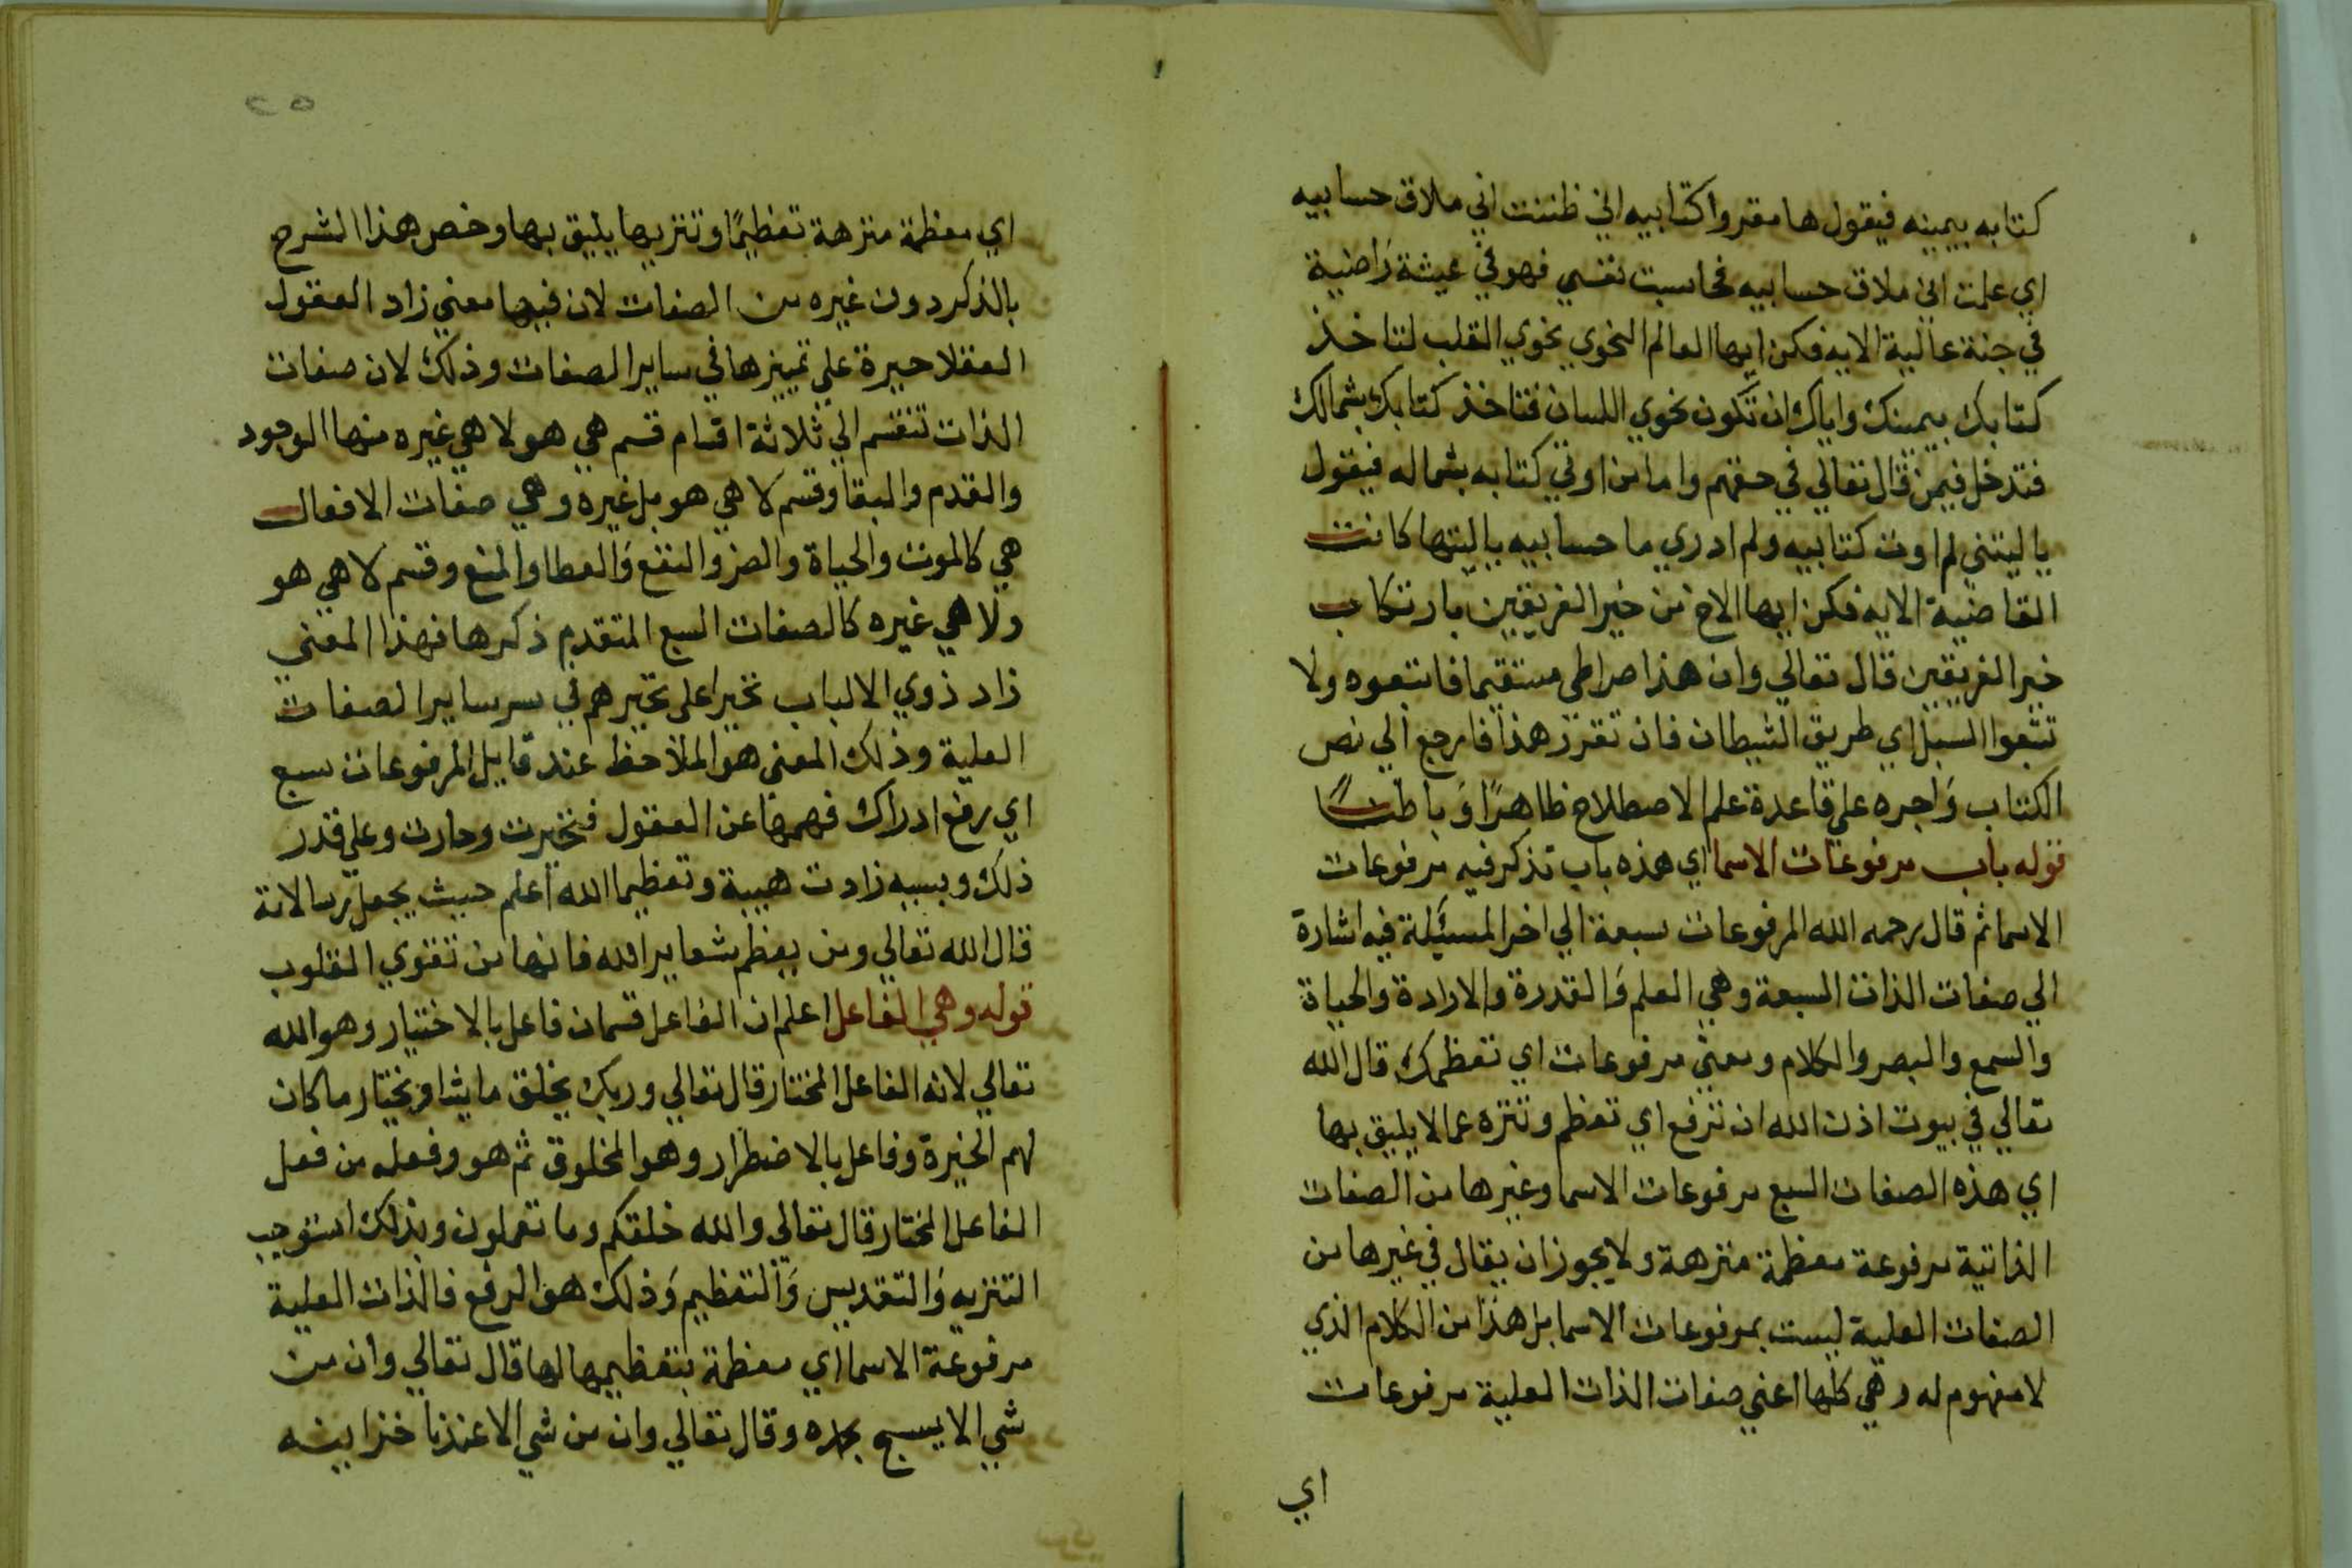 كتابه بيمينه فيقول هامقروا كتابيه اني ظننت اني ملاق حسابيه
اي علمت اني ملاق حسابيه فحاسبت نفسي فهو في عيشة راضية
في جنة عالية الايه فكن ايها العالم النحوي نحوي القلب لتاخذ
كتابك بيمينك واياك ان تكون نحوي اللسان فتاخذ كتابك بشمالك
فتدخل فيمن قال تعالي في حقهم واما من اوتي كتابه بشماله فيقول
ياليتني لم اوت كتابيه ولم ادري ما حسابيه ياليتها كانت
القاضية الايه فكن ايها الاخ من خير الفريقين بارتكاب
خير الفريقين قال تعالي وان هذا صراطي مستقيما فاتبعوه ولا
تتبعوا السبل اي طريق الشيطان فان تقرر هذا فارجع الي نص
الكتاب واجره علي قاعدة علم الاصطلاح ظاهرًا وباطنًا
قوله باب مرفوعات الاسما اي هذه باب تذكر فيه مرفوعات
الاسما ثم قال رحمه الله المرفوعات سبعة الي اخر المسئلة فيه اشارة
الي صفات الذات السبعة وهي العلم والقدرة والارادة والحياة
والسمع والبصر والكلام ومعني مرفوعات اي تعظمك قال الله
تعالي في بيوت اذن الله ان ترفع اي تعظم وتنزه عما لا يليق بها
اي هذه الصفات السبع مرفوعات الاسما وغيرها من الصفات
الذاتية مرفوعة معظمة منزهة ولا يجوز ان يقال في غيرها من
الصفات العلية ليست بمرفوعات الاسما بل هذا من الكلام الذي
لا مفهوم له وهي كلها اعني صفات الذات العلية مرفوعات
اي
اي معظمة منزهة تعظيمًا وتنزيها يليق بها وخص هذا الشرح
بالذكر دون غيره من الصفات لان فيها معني زاد العقول
العقلا حيرة علي تمييزها في ساير الصفات وذلك لان صفات
الذات تنقسم الي ثلاثة اقسام قسم هي هو لا هي غيره منها الوجود
والقدم والبقا وقسم لا هي هو بل غيره وهي صفات الافعال
هي كالموت والحياة والضر والنفع والعطا والمنع وقسم لا هي هو
ولا هي غيره كالصفات السبع المتقدم ذكرها فهذا المعني
زاد ذوي الالباب تحيرا علي تحيرهم في سر ساير الصفات
العلية وذلك المعني هو الملاحظ عند قايل المرفوعات سبع
اي رفع ادراك فهمها عن العقول فتحيرت وحارت وعلي قدر
ذلك وبسببه زادت هيبة وتعظيما الله اعلم حيث يجعل رسالاته
قال الله تعالي ومن يعظم شعاير الله فانها من تقوي القلوب
قوله وهي الفاعل اعلم ان الفاعل قسمان فاعل بالاختيار وهو الله
تعالي لانه الفاعل المختار قال تعالي وربك يخلق ما يشا ويختار ما كان
لهم الخيرة وفاعل بالاضطرار وهو المخلوق ثم هو وفعله من فعل
الفاعل المختار قال تعالي والله خلقكم وما تعملون وبذلك استوجب
التنزيه والتقديس والتعظيم وذلك هو الرفع فالذات العلية
مرفوعة الاسما اي معظمة بتعظيمها لها قال تعالي وان من
شي الا يسبح بحمده وقال تعالي وان من شي الا عندنا خزاينه